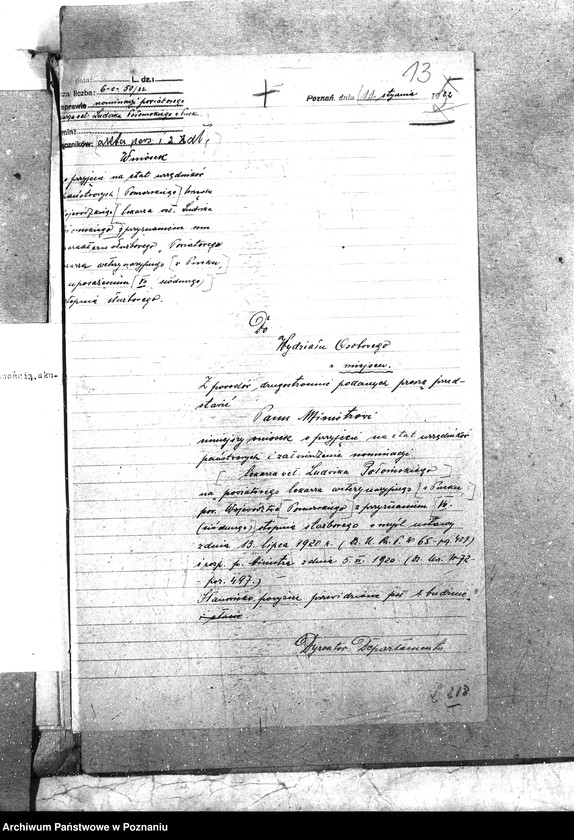 13
dnia: L. dz.:
sza liczba: 6-c-50/22
Poznań, dnia 11. stycznia 1922
sprawie nominacji powiatowego
lekarza wet. Ludwika
łączników: akta pers i 2 zał.
Wniosek
o przyjęcie na etat urzędników
państwowych [Pomorskiego]
[lekarza wet. Ludwika
] z przyznaniem mu
charakteru służbowego "Powiatowego
lekarza weterynaryjnego [w Pucku]
uposażeniem [VII siódmego]
stopnia służbowego.
Do
Wydziału Osobowego
w miejscu.
wością, aku-
Z powodów drugostronnie podanych proszę przed-
stawić
Panu Ministrowi
niniejszy wniosek o przyjęcie na etat urzędników
państwowych i zatwierdzenie nominacji
[lekarza wet. Ludwika
na powiatowego lekarza weterynaryjnego [w Pucku]
Województwa Pomorskiego z przyznaniem VII.
(siódmego) stopnia służbowego w myśl ustawy
z dnia 13. lipca 1920 r. (Dz. U. R. P. № 65 - poz. 429)
i rozp. p. Ministra z dnia 5. 1920 (Dz. Ust. № 72 -
poz. 497.)
Stanowisko powyższe przewidziane jest w budżecie
Dyrektor Departamentu
Archiwum Państwowe w Poznaniu